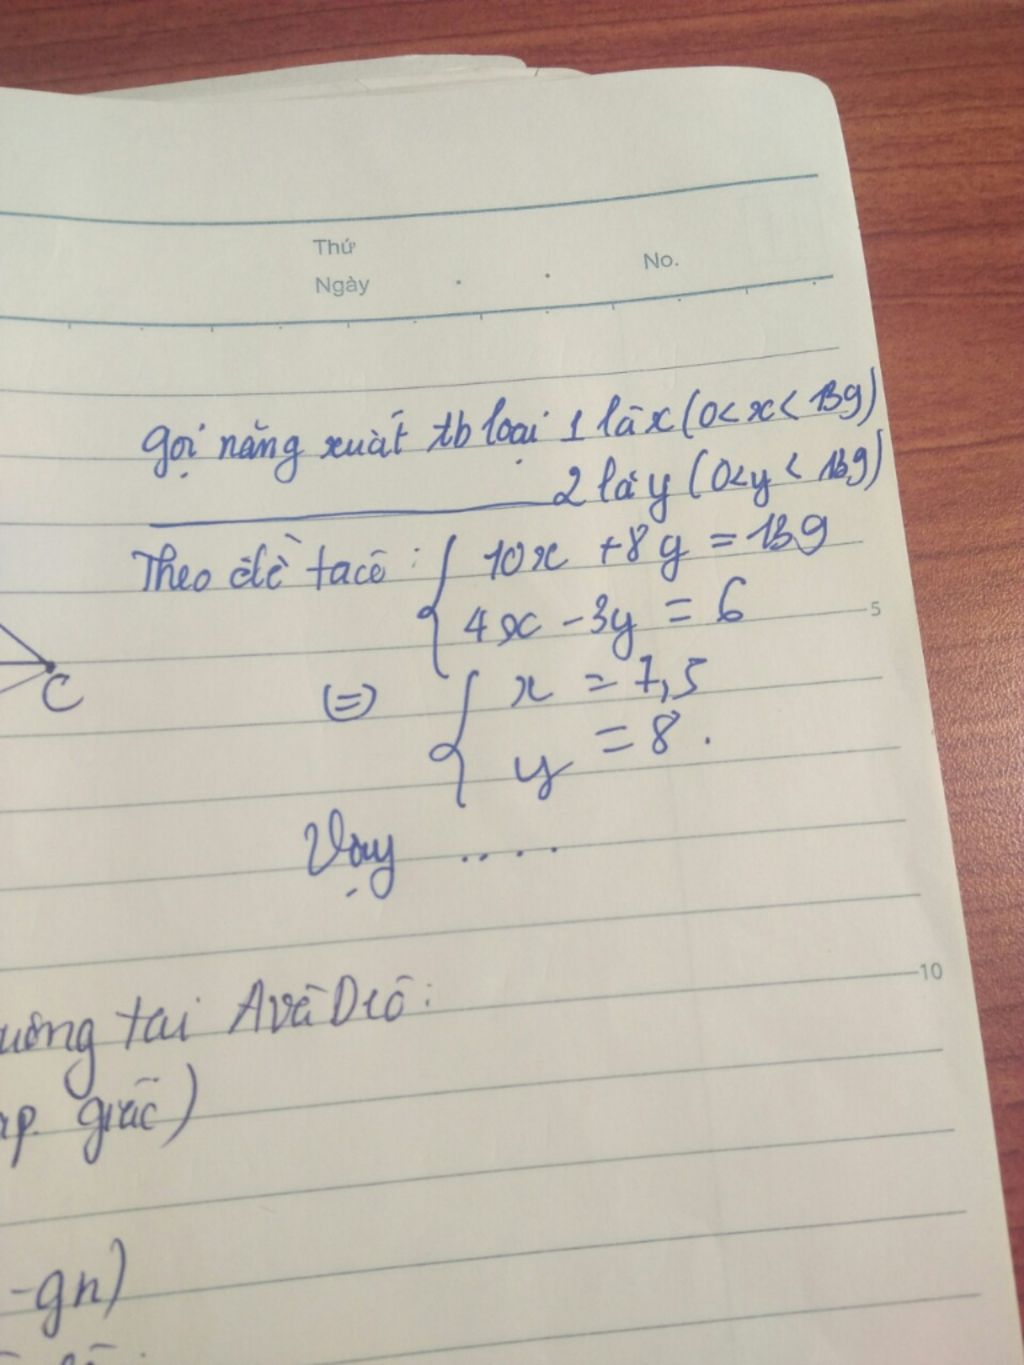 Thứ
Ngày
No.
gọi năng xuất tb loại 1 là x (0< x < 139)
2 là y (0<y < 139)
Theo đề ta có : { 10x + 8y = 139
4x - 3y = 6
5
C
(=) { x = 7,5
y = 8 .
Vậy ....
10
uông tại A và D có :
p. giác)
-gn)